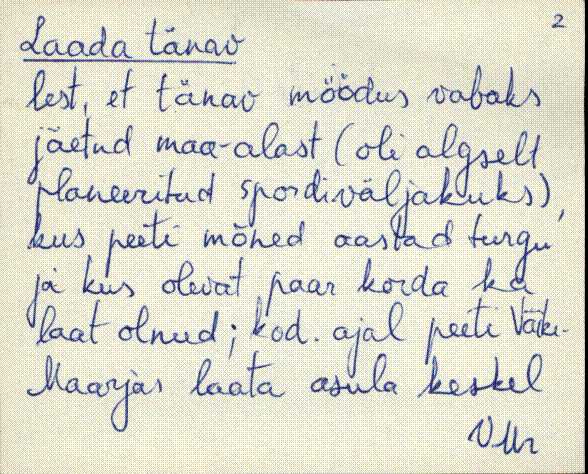 2
Laada tänav
lest, et tänav möödus vabaks
jäetud maa-alast (oli algselt
planeeritud spordiväljakuks),
kus peeti mõned aastad turgu
ja kus olevat paar korda ka
laat olnud; kod. ajal peeti Väike-
Maarjas laata asula keskel
VMr